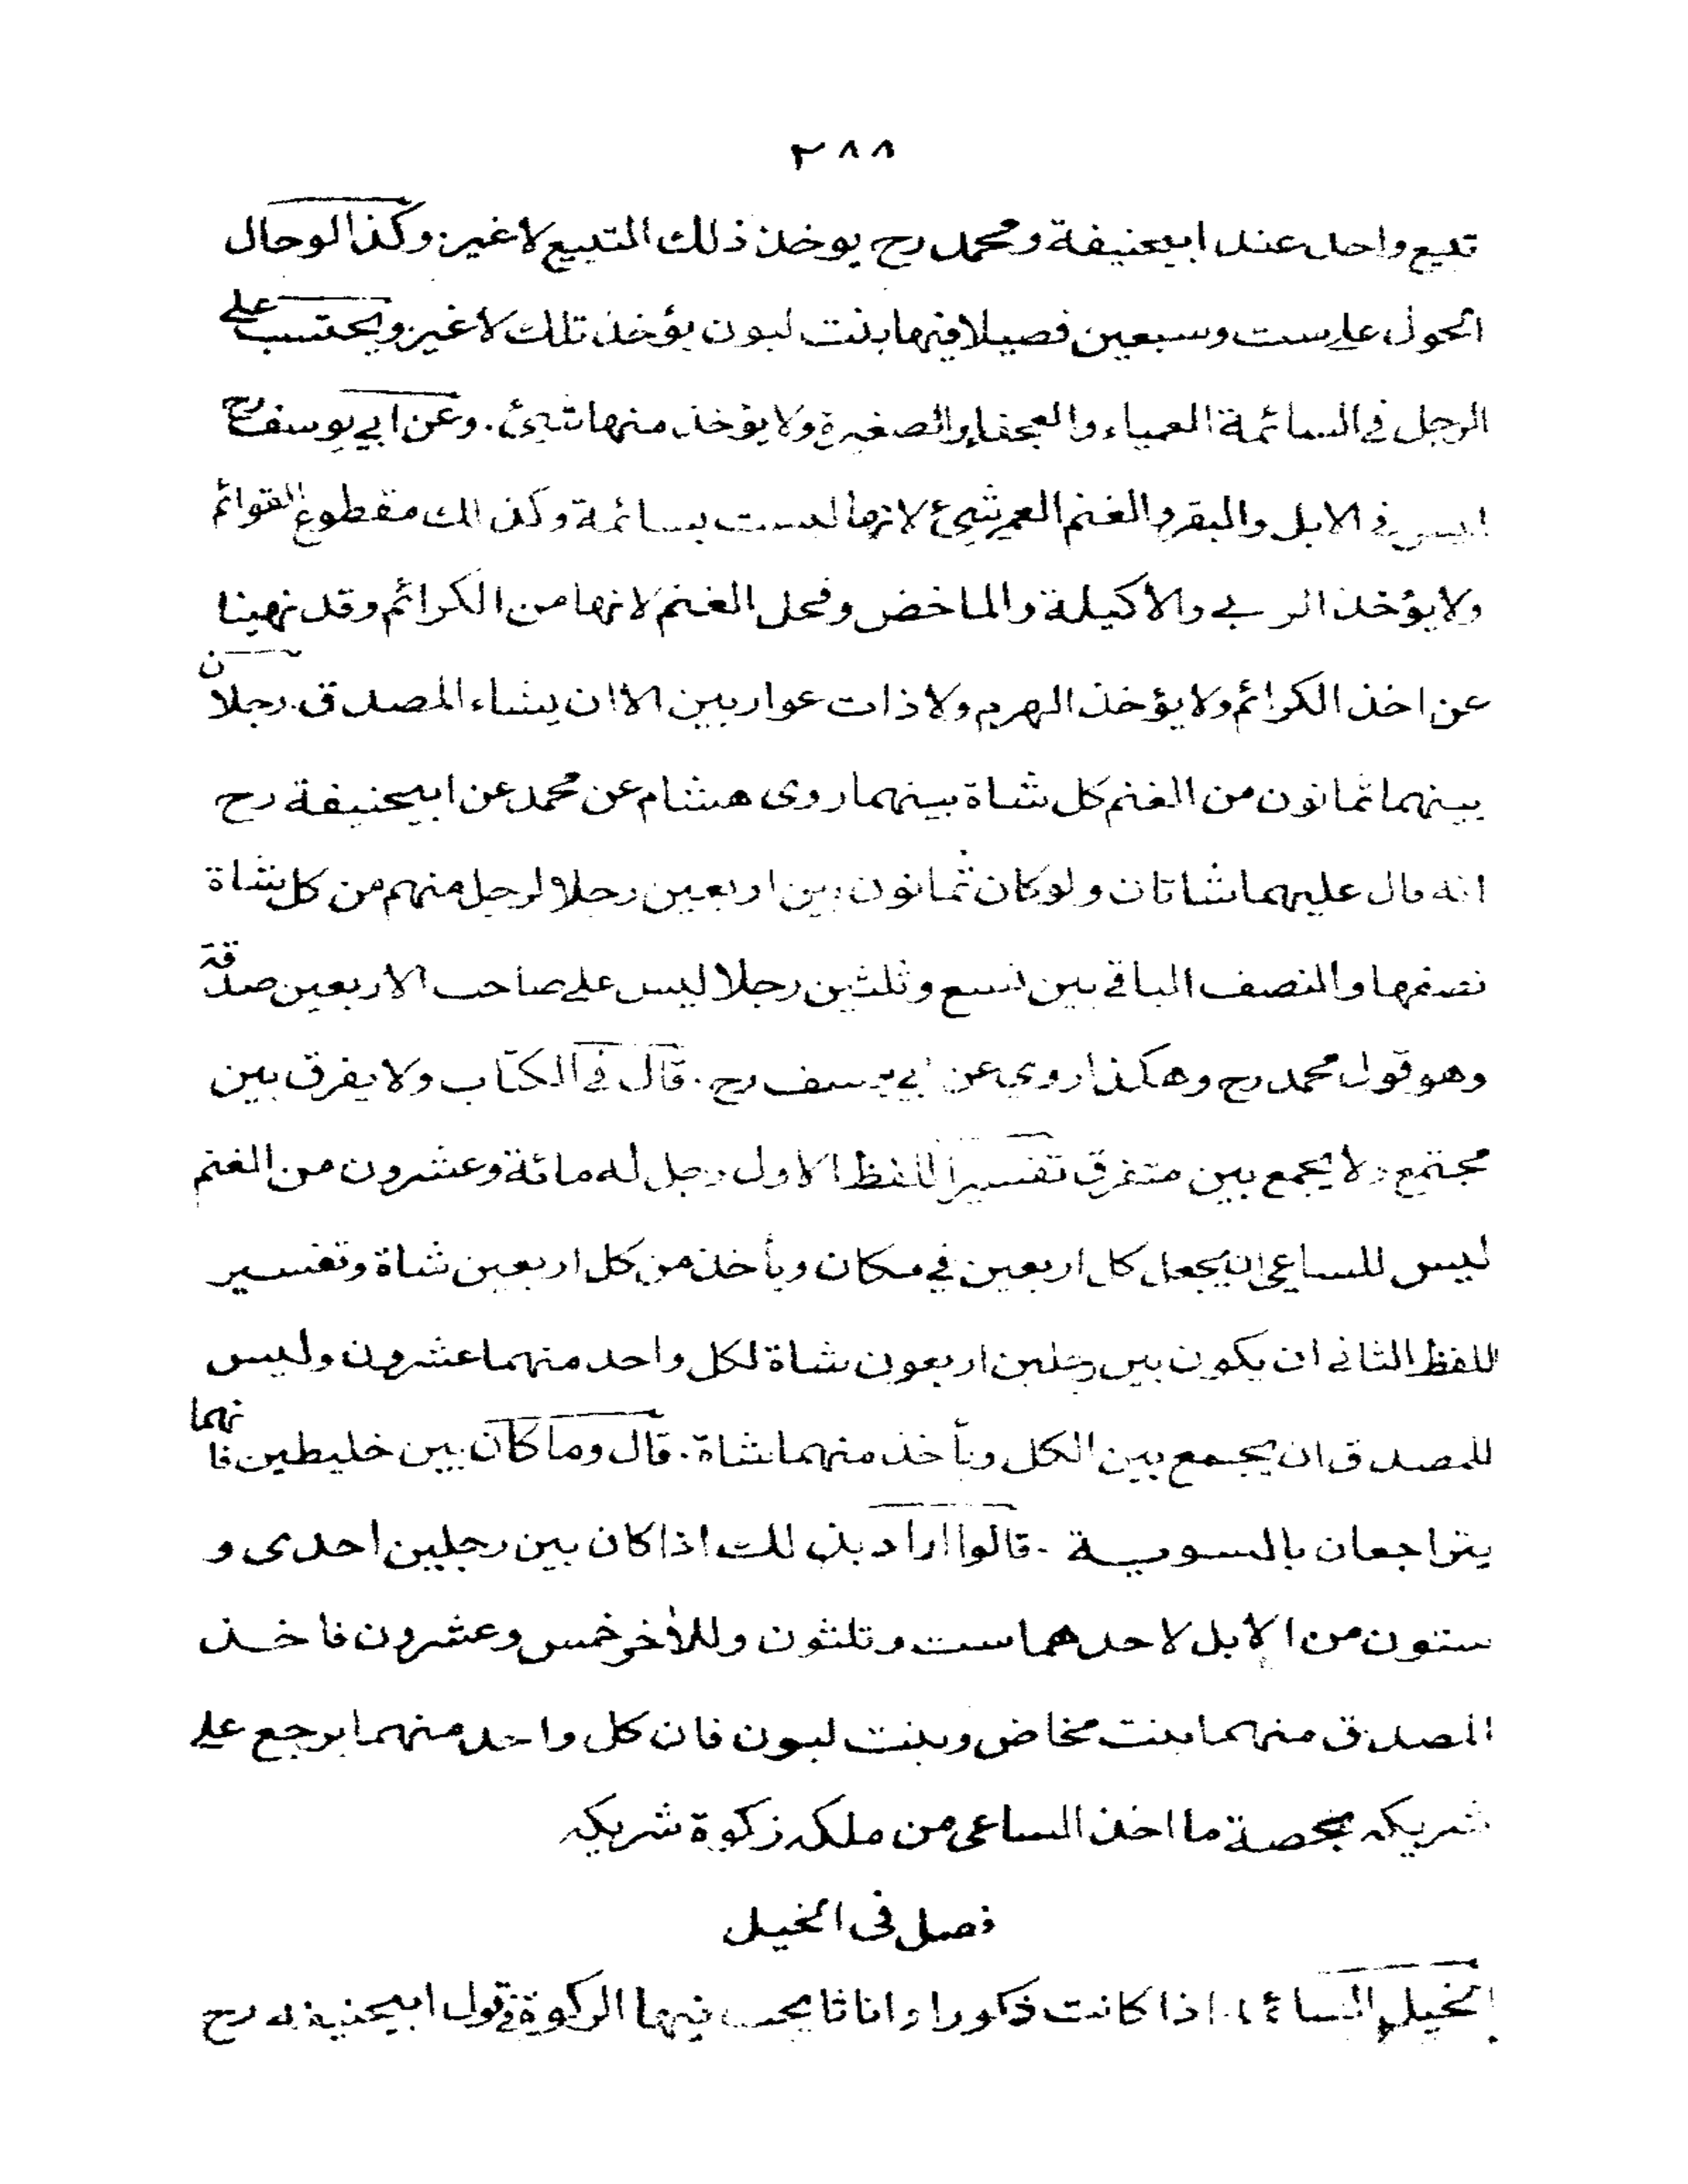 ٢٨٨
تبيع واحد عند ابيحنيفة ومحمد رح يوخذ ذلك التبيع لاغير وكذا لوحال
الحول على ست وسبعين فصيلا فيها بنت لبون يؤخذ تلك لاغير ويحتسب على
الرجل في السائمة العمياء والعجفاء والصغيرة ولا يؤخذ منها شيئ. وعن ابي يوسف رح
ليس في الابل والبقر والغنم العمي شيئ لانها ليست بسائمة وكذلك مقطوع القوائم
ولا يؤخذ الربى والاكيلة والماخض وفحل الغنم لانها من الكرائم وقد نهينا
عن اخذ الكرائم ولا يؤخذ الهرم ولا ذات عوار بين الا ان يشاء المصدق. رجلان
بينهما ثمانون من الغنم كل شاة بينهما روى هشام عن محمد عن ابيحنيفة رح
انه قال عليهما شاتان ولو كان ثمانون بين اربعين رجلا لرجل منهم من كل شاة
نصفها والنصف الباقي بين تسع وثلثين رجلا ليس على صاحب الاربعين صدقة
وهو قول محمد رح وهكذا روي عن ابي يوسف رح. قال في الكتاب ولا يفرق بين
مجتمع ولا يجمع بين متفرق تفسير اللفظ الاول رجل له مائة وعشرون من الغنم
ليس للساعي ان يجعل كل اربعين في مكان ويأخذ من كل اربعين شاة وتفسير
اللفظ الثاني ان يكون بين رجلين اربعون شاة لكل واحد منهما عشرون وليس
للمصدق ان يجمع بين الكل ويأخذ منهما شاة. قال وما كان بين خليطين فانهما
يتراجعان بالسوية. قالوا اراد بذلك اذا كان بين رجلين احدى و
ستون من الابل لاحدهما ست وثلثون وللأخر خمس وعشرون فاخذ
المصدق منهما بنت مخاض وبنت لبون فان كل واحد منهما يرجع على
شريكه بحصة ما اخذ الساعي من ملكه زكوة شريكه
فصل في الخيل
الخيل السائمة اذا كانت ذكورا واناثا يجب فيها الزكوة في قول ابيحنيفة رح